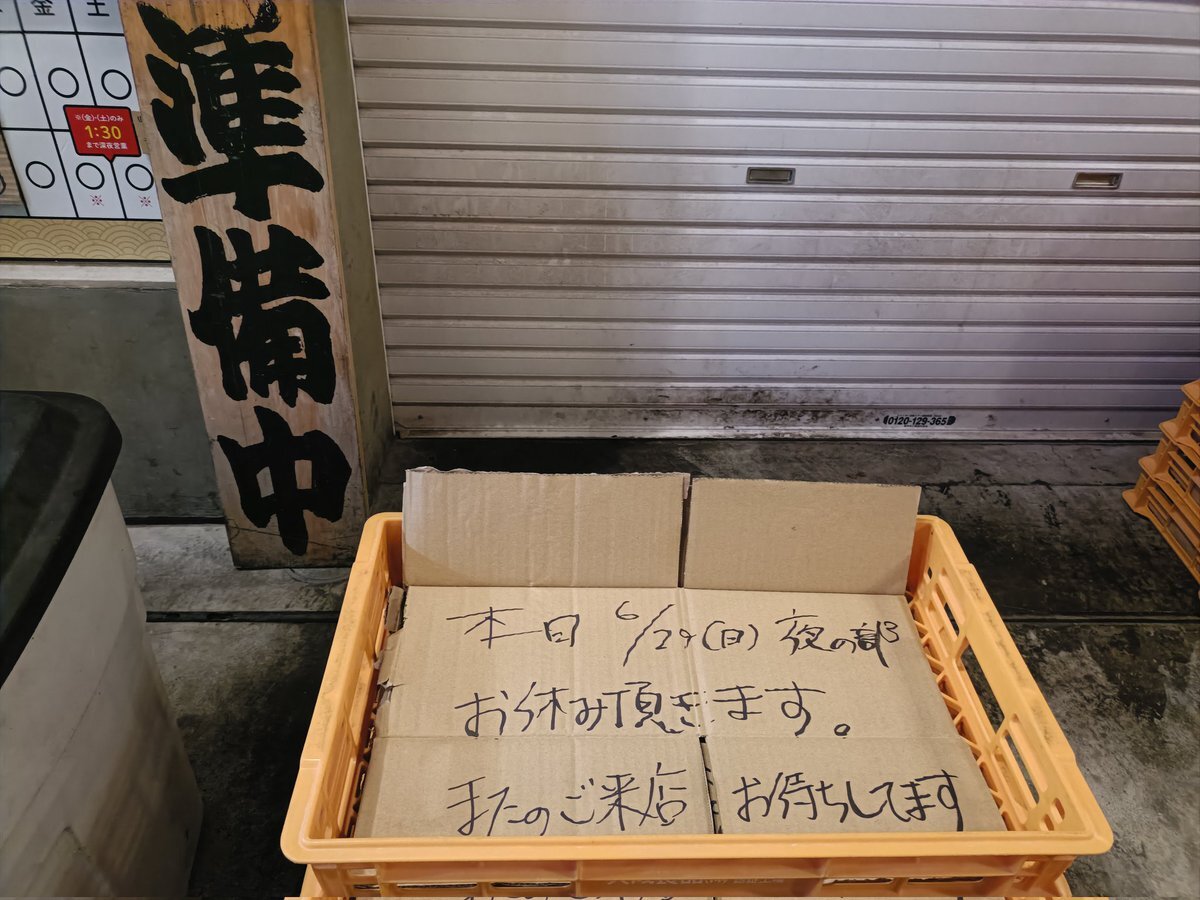 金 土
※(金)・(土)のみ
1:30
まで深夜営業
※ ※
準備中
0120-129-365
本日 6/29(日) 夜の部
お休み頂きます。
またのご来店 お待ちしてます